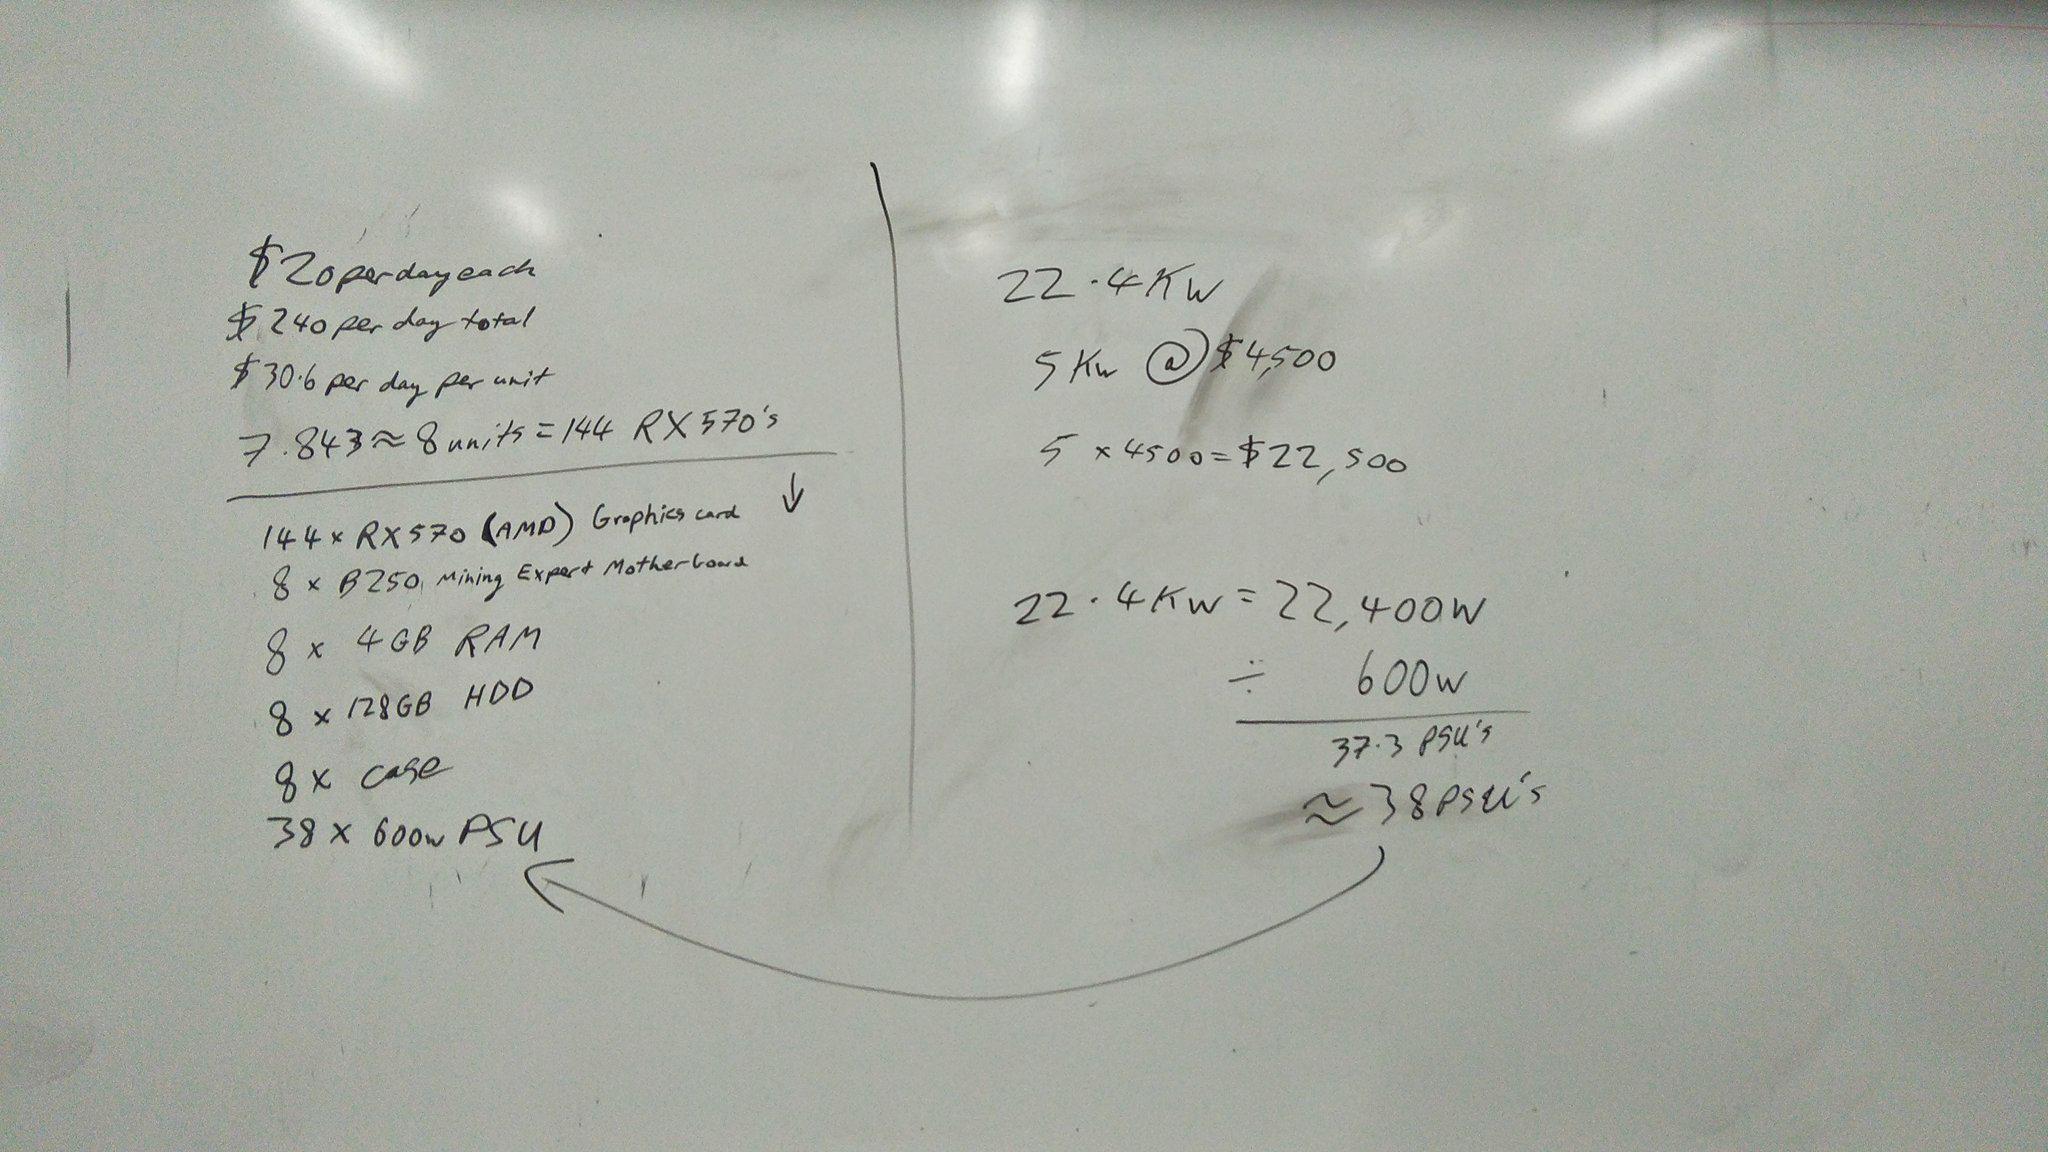 $20 per day each
$240 per day total
$30.6 per day per unit
7.843 ≈ 8 units = 144 RX570's
↓
144 x RX570 (AMD) Graphics card
8 x B250 Mining Expert Motherboard
8 x 4GB RAM
8 x 128GB HDD
8 x case
38 x 600w PSU
22.4Kw
5 Kw @ $4,500
5 x 4500 = $22,500
22.4Kw = 22,400w
÷ 600w
37.3 PSU's
≈ 38 PSU's